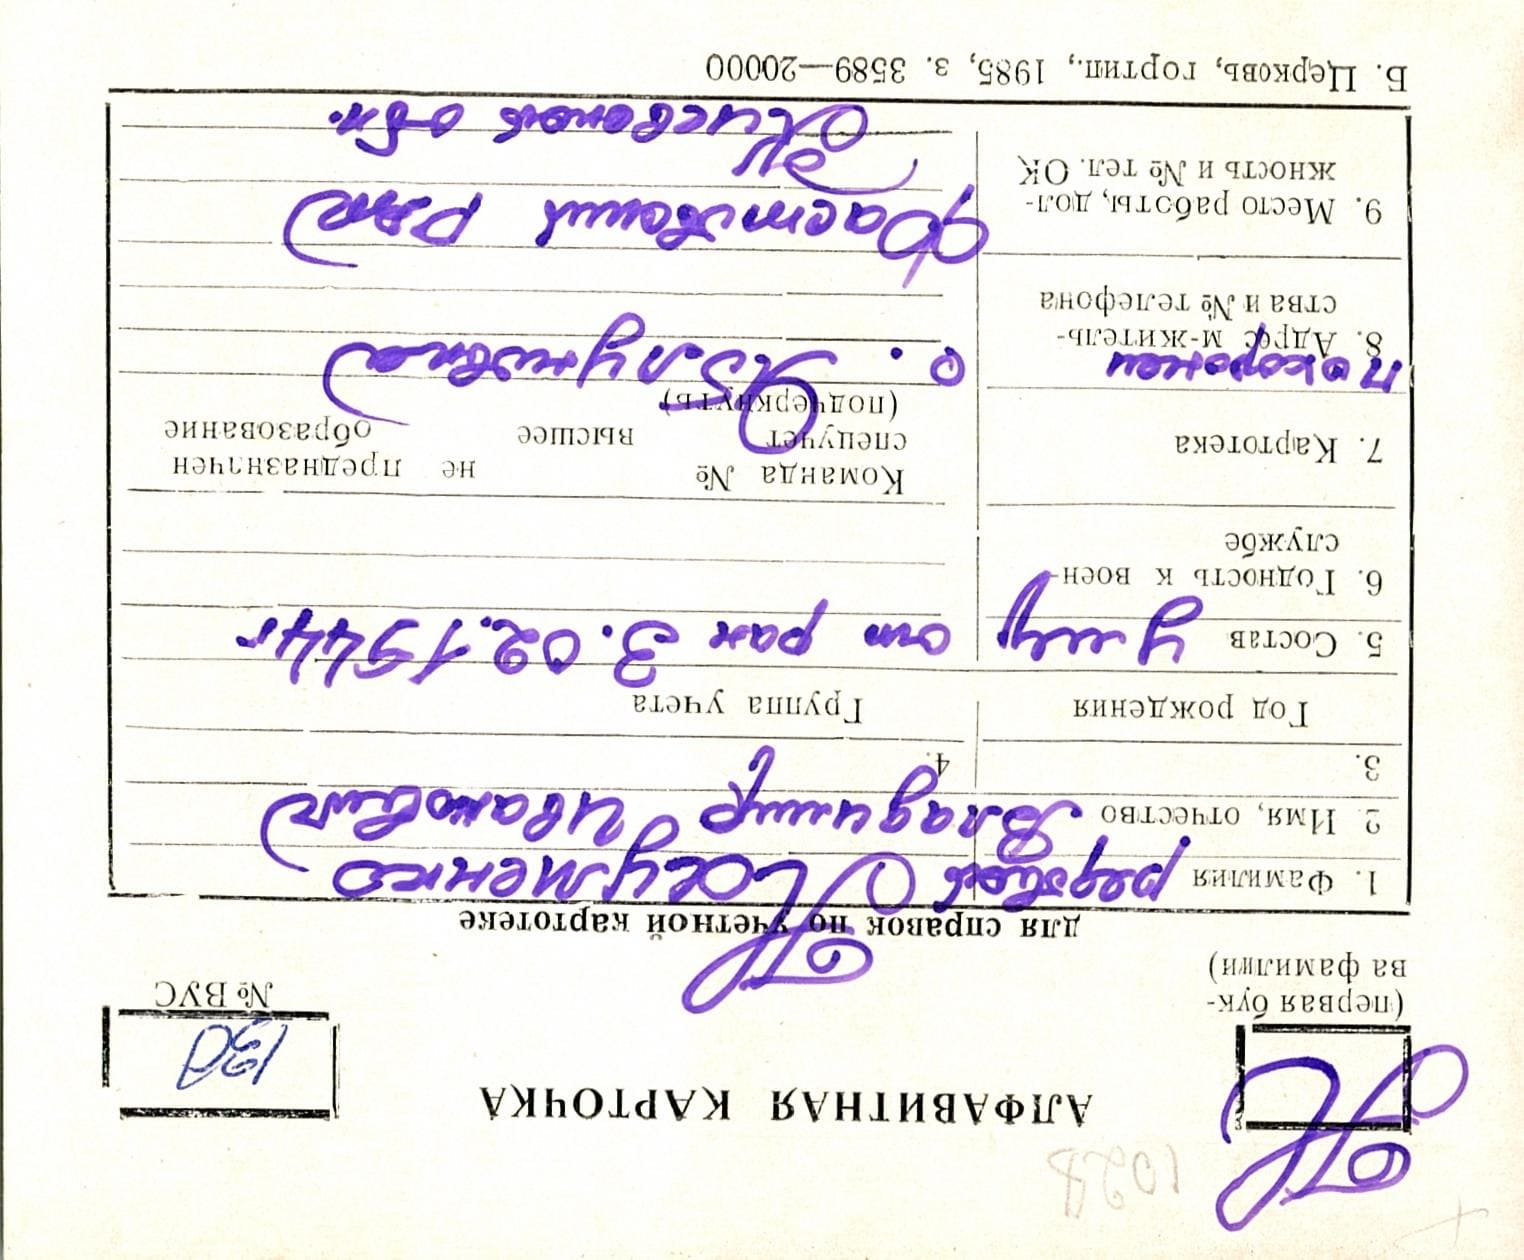 АЛФАВИТНАЯ КАРТОЧКА
(первая бук-
ва фамилии)
№ ВУС
для справок по учетной картотеке
1. Фамилия рядовой
2. Имя, отчество Владимир Иванович
3.
4.
Год рождения Группа учета
5. Состав умер от ран 3.02.1944г
6. Годность к воен-
службе
7. Картотека
Команда № не предназначен
спецучет высшее образование
(подчеркнуть)
похоронен с. Яблунивка
8. Адрес м-житель-
ства и № телефона
Фастовский р-н
9. Место работы, дол-
жность и № тел. ОК
Киевской обл.
Б. Церковь, гортип., 1985, з. 3589—20000